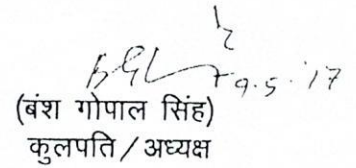 9.5.'17
(बंश गोपाल सिंह)
कुलपति / अध्यक्ष